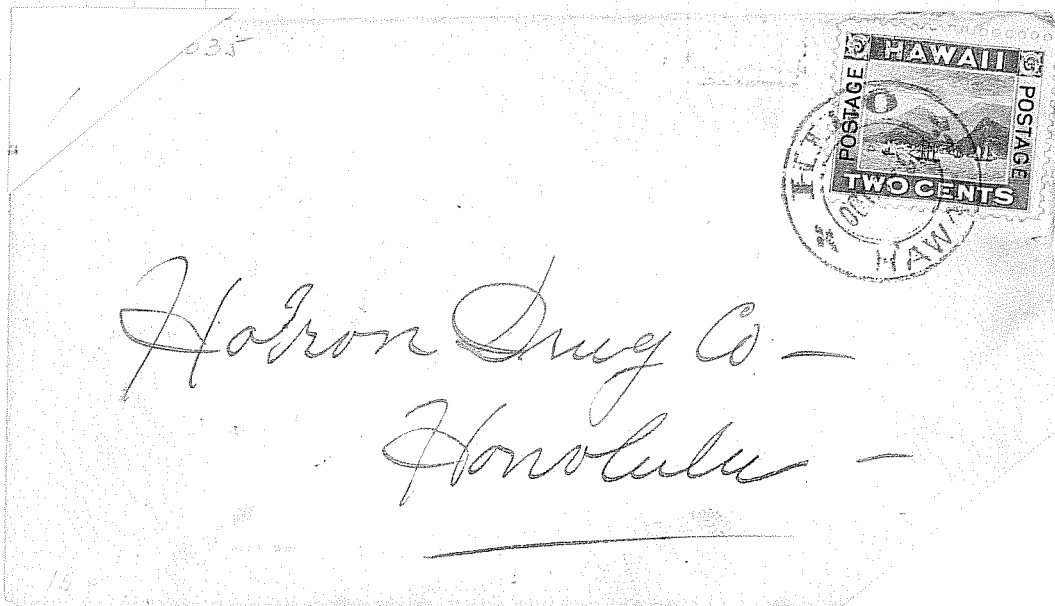 035
HAWAII
POSTAGE
POSTAGE
TWO CENTS
HAW
Hobron Drug Co. —
Honolulu —
15